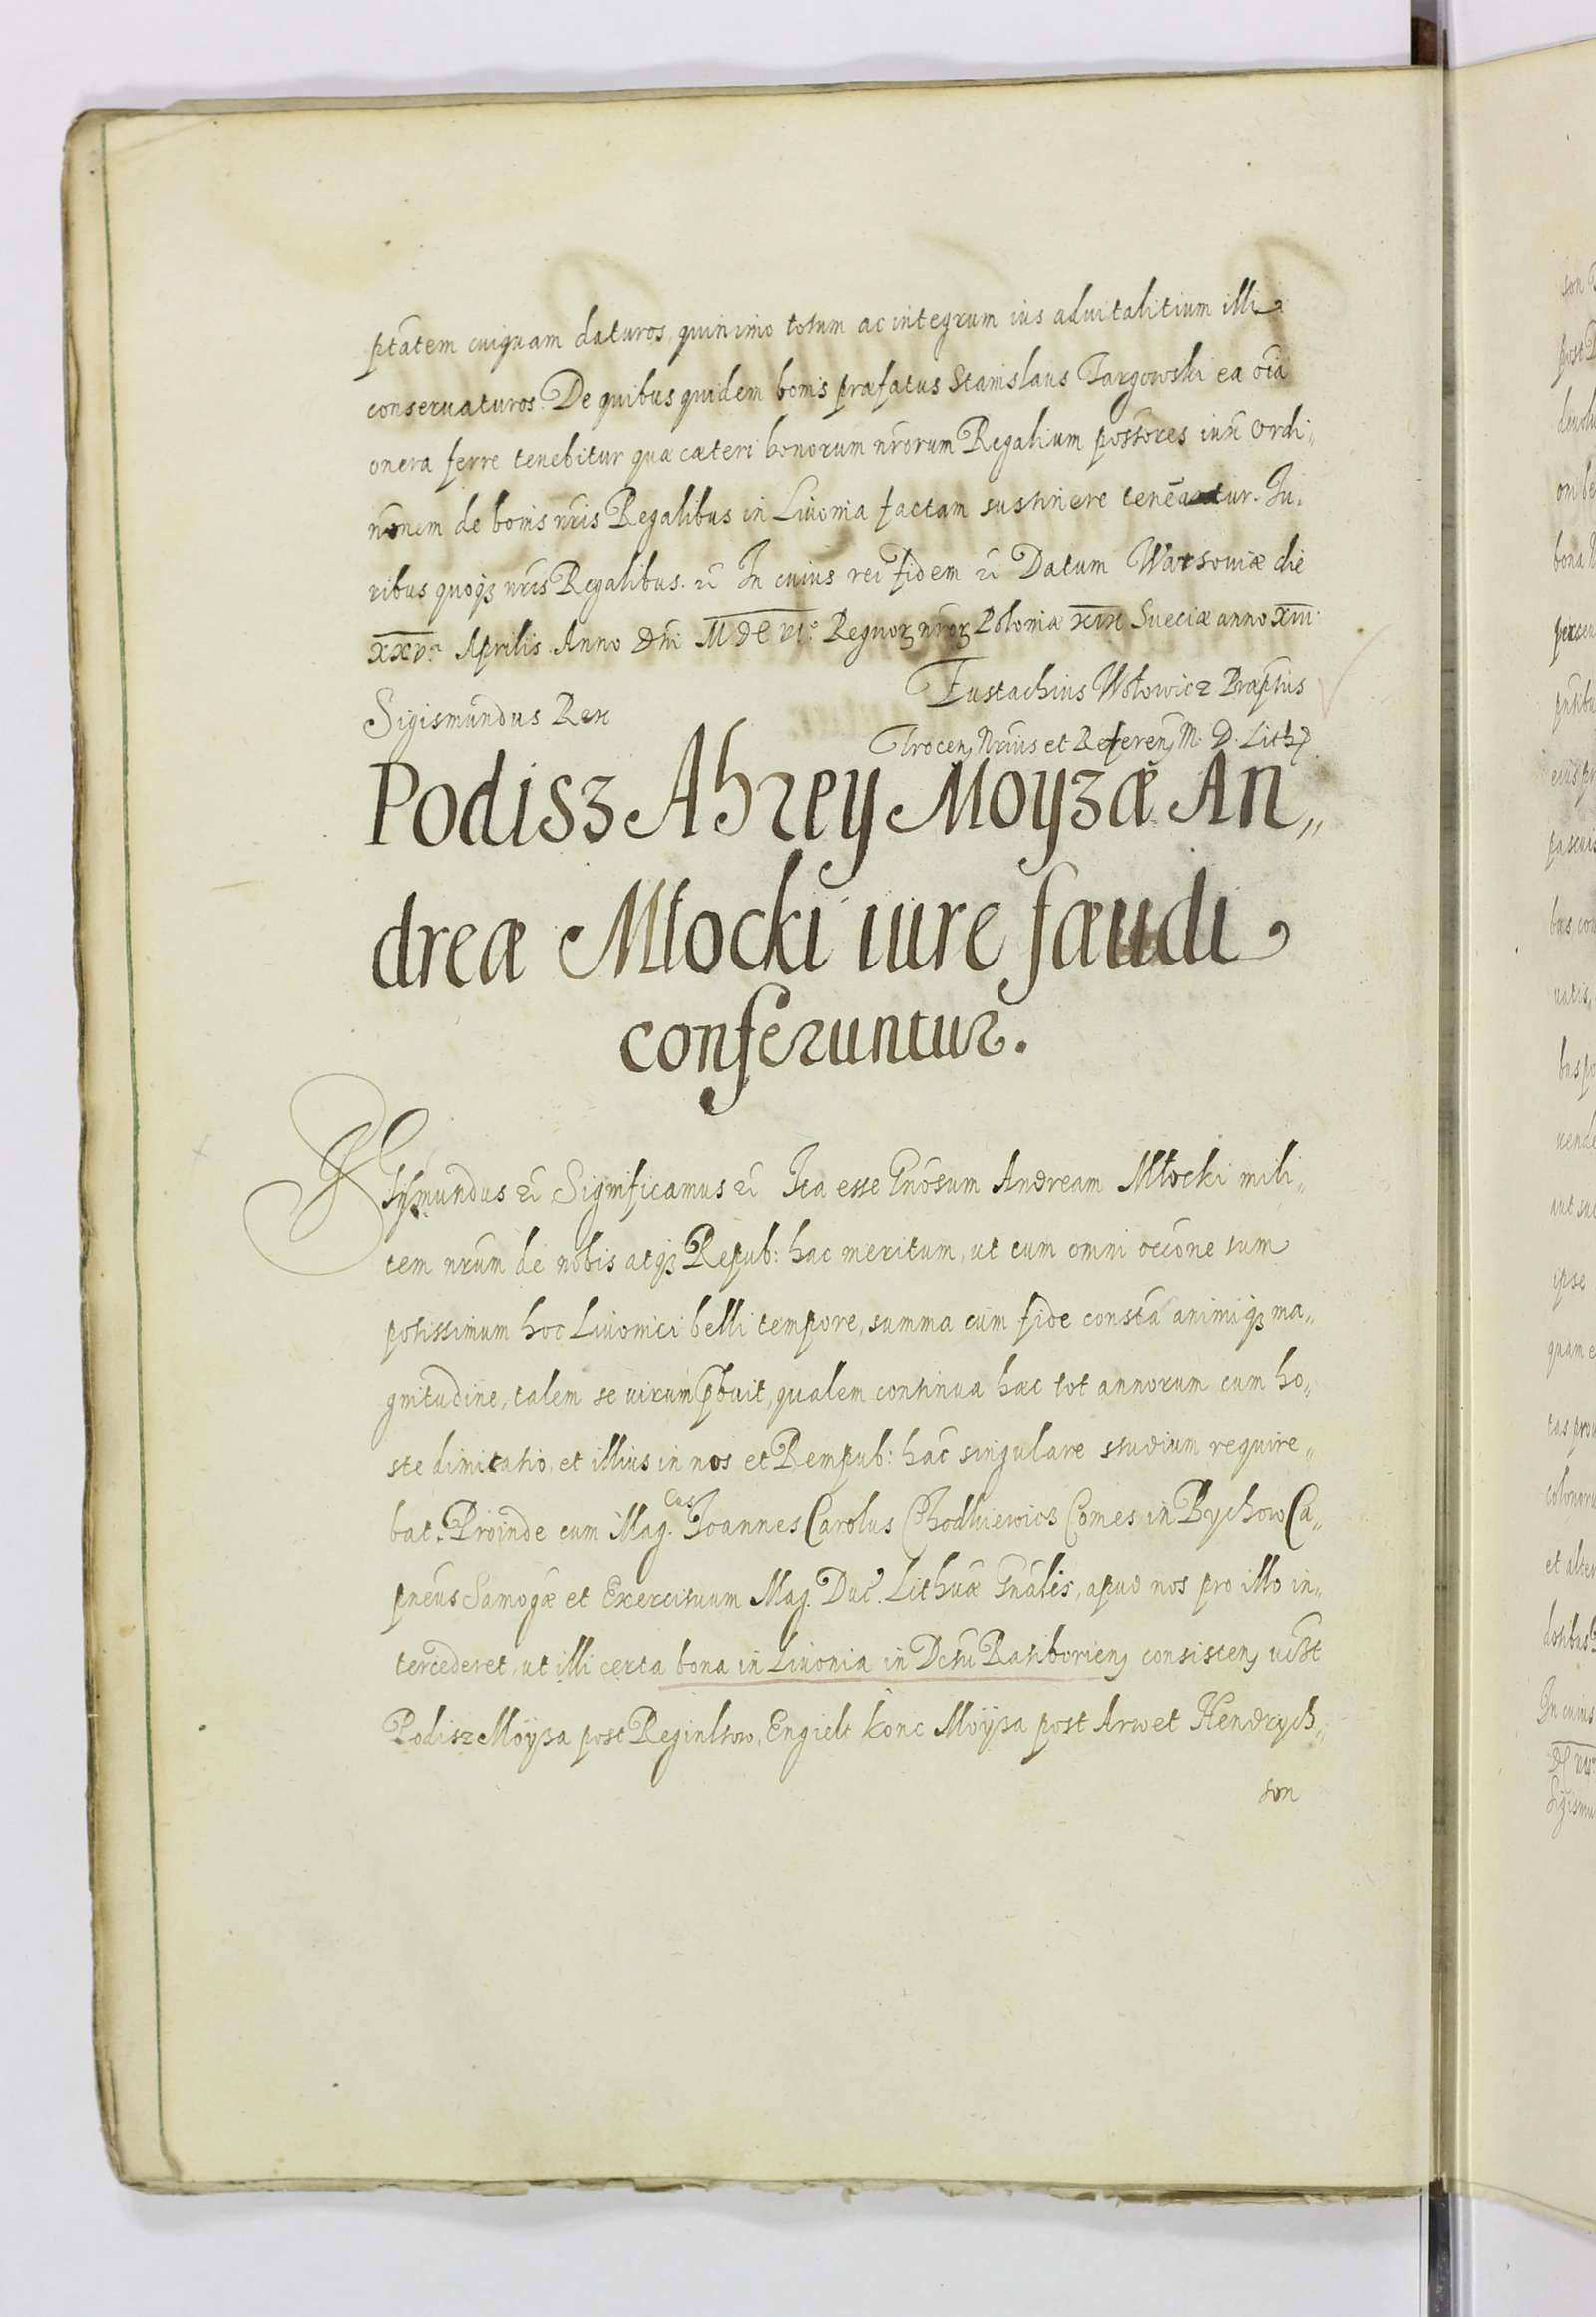 ptatem cuiquam daturos, quinimo totum ac integrum ius aduitalitium illi
conseruaturos. De quibus quidem bonis præfatus Stanislaus Targowski ea oīa
onera ferre tenebitur quæ cæteri bonorum nrōrum Regalium possōres iuxī Ordi„
nōnem de bonis nrīs Regalibus in Liuonia factam sustinere tenēantur. Iu„
ribus quoqз nrīs Regalibus. ēt In cuius rei fidem ēt Datum Warsouiæ die
XXV.ᵃ Aprilis. Anno Dnī MDCVI.º Regnoꝝ nrōꝝ Poloniæ XIX Sueciæ anno XIII.
Sigismundus Rex
Eustachius Wołowicz Præptus
Trocen, Nrīus et Referen, M. D. Lith.
Podisz Ahrey Moyzæ An„
dreæ Młocki iure fæudi
conferuntur.
Sigismundus ēt Significamus ēt Ita esse Gnōsum Andream Młocki mili„
tem nrūm de nobis atqз Repub: hac meritum, ut cum omni occōne tum
potissimum hoc Liuonici belli tempore, summa cum fide constā animiqз ma„
gnitudine, talem se uirum pbuit, qualem continua hæc tot annorum cum ho„
ste dimicatio, et illius in nos et Rempub: hāc singulare studium require„
bat. Proinde cum Mag.cus Ioannes Carolus Chodkiewicz Comes in Bychow Ca„
pneūs Samogæ et Exercituum Mag. Duc. Lithuæ Gnālis, apud nos pro illo in„
tercederet, ut illi certa bona in Liuonia in Dctū Ratiborien, consisten, ucꝫt
Podisz Moÿza post Reginltow, Engielt konc Moÿza post Arwet Hendrych„
son